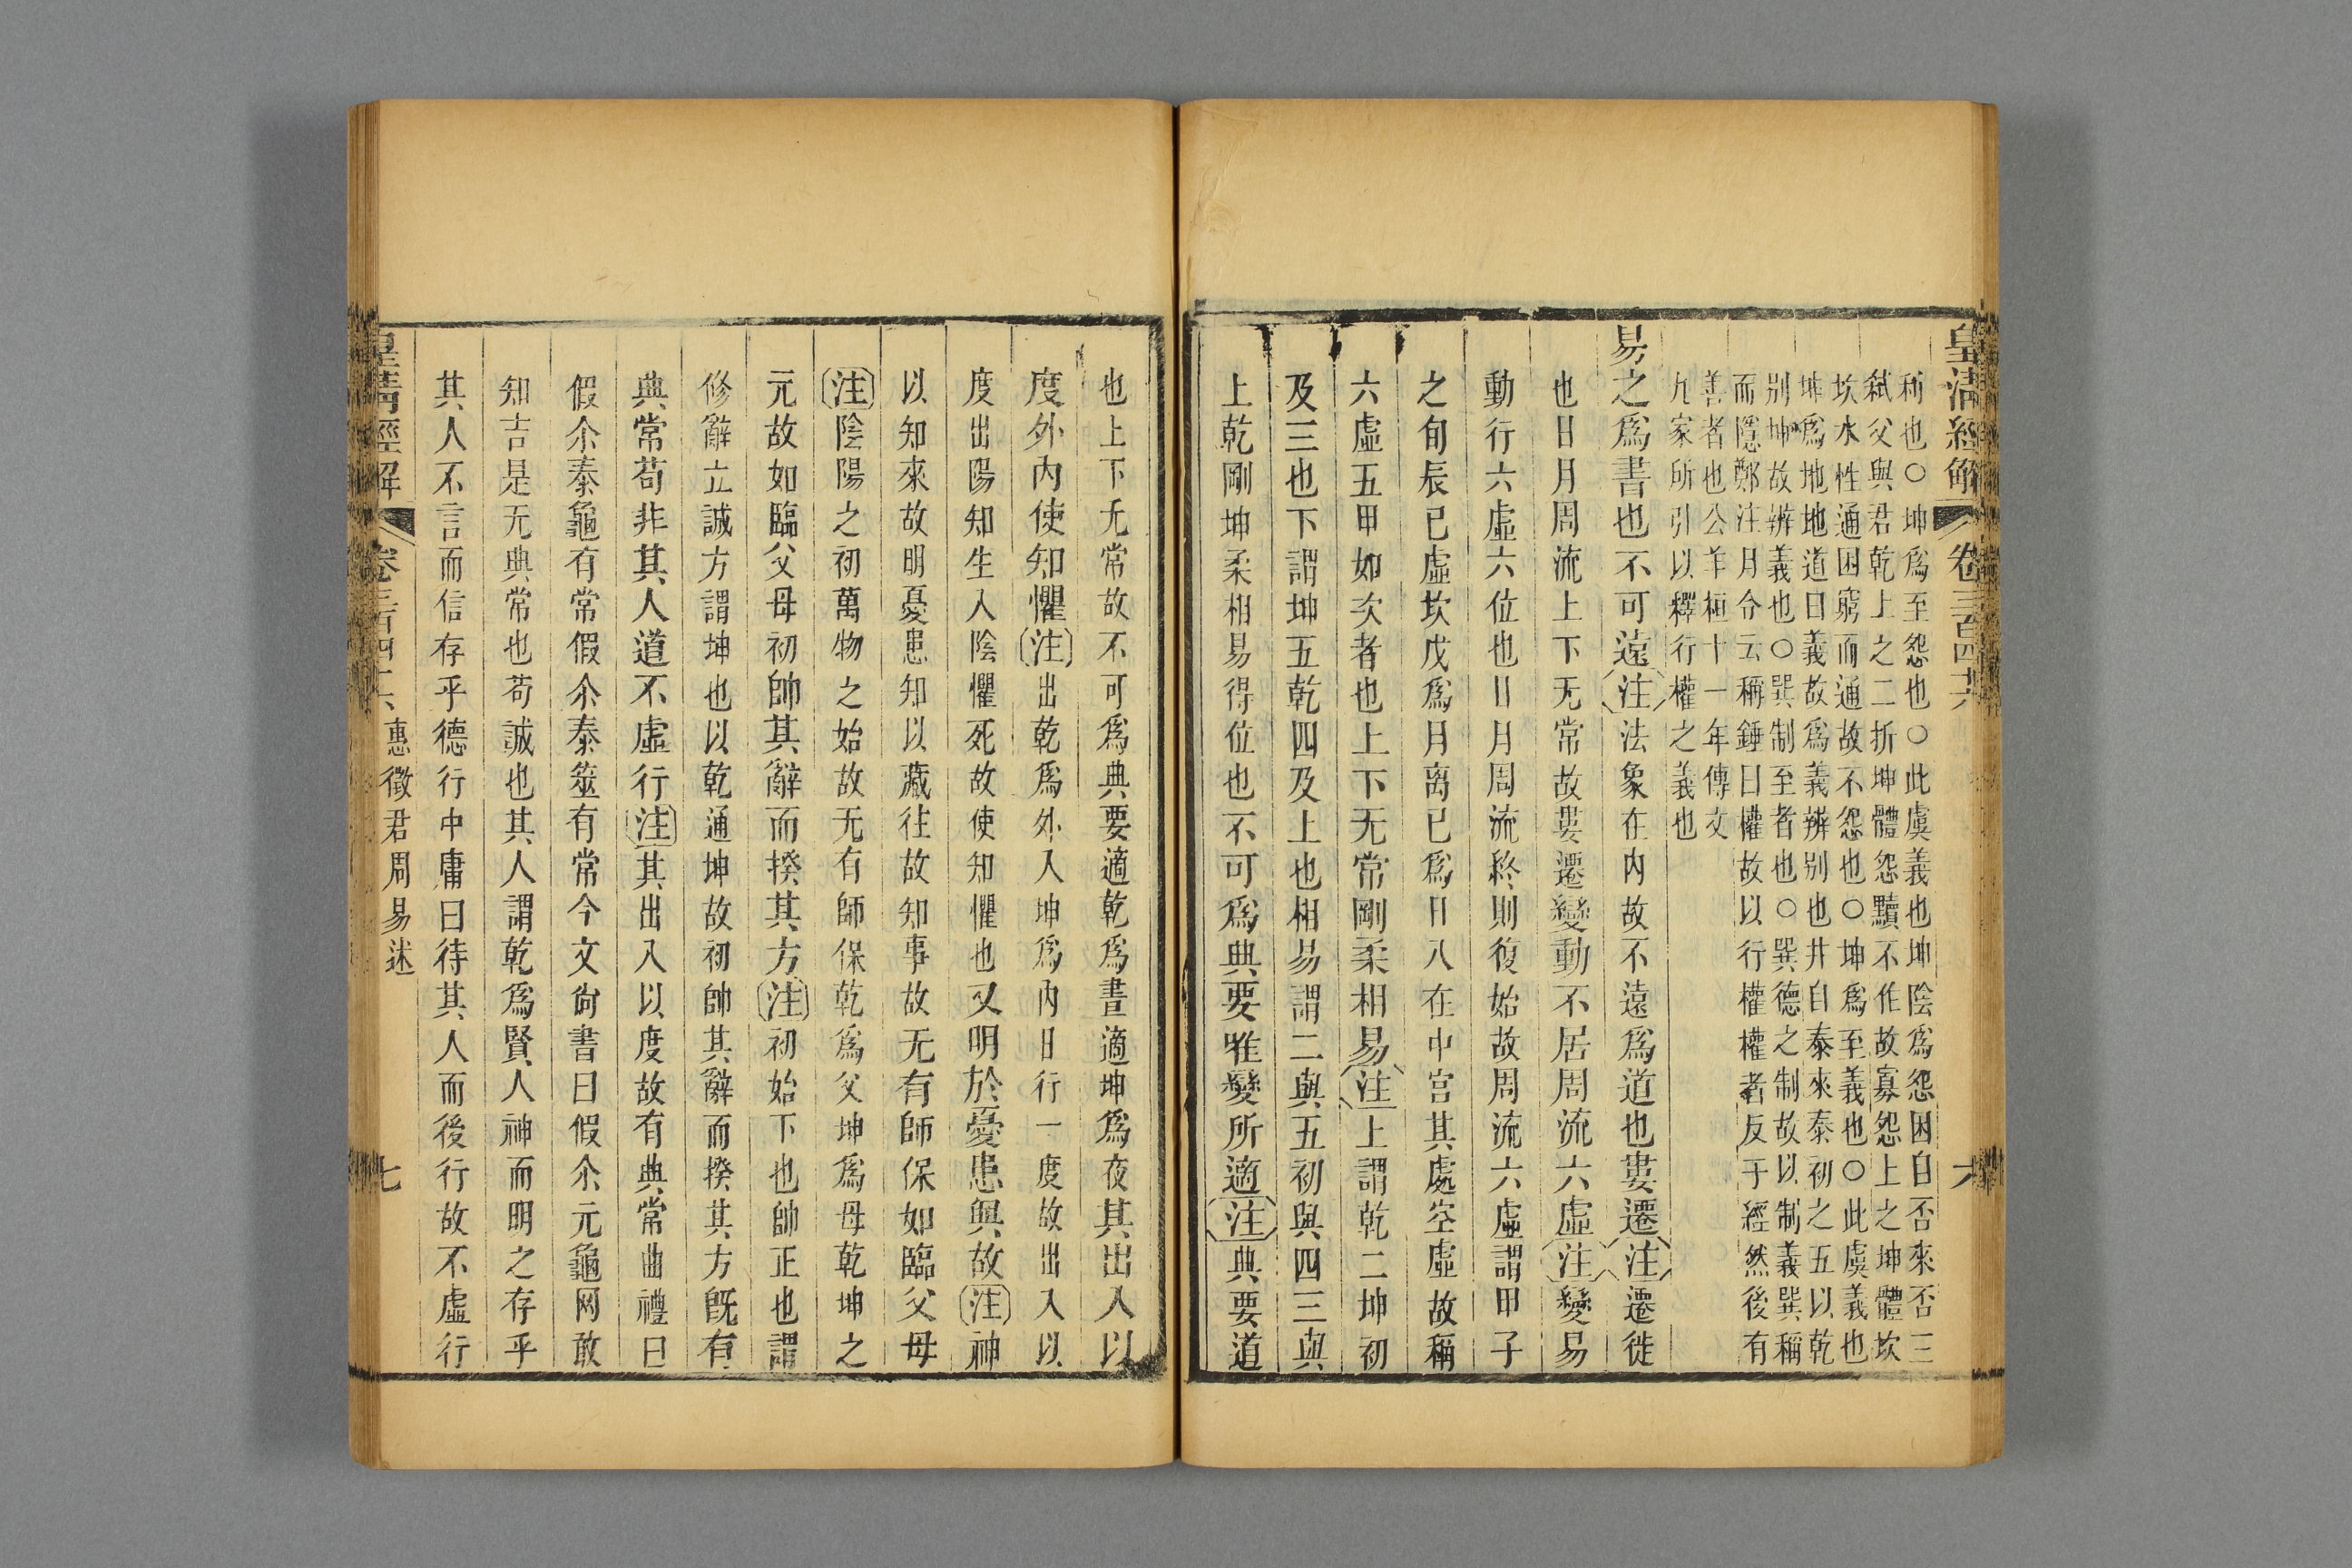 皇清經解 卷三百四十六 六
利也○坤爲至怨也○此虞義也坤陰爲怨困自否來否三
弑父與君乾上之二折坤體怨黷不作故寡怨上之坤體坎
坎水性通困窮而通故不怨也○坤爲至義也○此虞義也
坤爲地地道曰義故爲義辨别也井自泰來泰初之五以乾
别坤故辨義也○巽制至者也○巽德之制故以制義巽稱
而隱鄭注月令云稱錘曰權故以行權權者反于經然後有
善者也公羊桓十一年傳文
九家所引以釋行權之義也
易之爲書也不可遠注法象在内故不遠爲道也婁遷注遷徙
也日月周流上下无常故婁遷變動不居周流六虛注變易
動行六虛六位也日月周流終則復始故周流六虛謂甲子
之旬辰巳虛坎戊爲月离己爲日入在中宫其處空虛故稱
六虛五甲如次者也上下无常剛柔相易注上謂乾二坤初
及三也下謂坤五乾四及上也相易謂二與五初與四三與
上乾剛坤柔相易得位也不可爲典要唯變所適注典要道
也上下无常故不可爲典要適乾爲晝適坤爲夜其出入以
度外内使知懼注出乾爲外入坤爲内日行一度故出入以
度出陽知生入陰懼死故使知懼也又明於憂患與故注神
以知來故明憂患知以藏往故知事故无有師保如臨父母
注陰陽之初萬物之始故无有師保乾爲父坤爲母乾坤之
元故如臨父母初帥其辭而揆其方注初始下也帥正也謂
修辭立誠方謂坤也以乾通坤故初帥其辭而揆其方旣有
典常苟非其人道不虛行注其出入以度故有典常曲禮曰
假尒泰龜有常假尒泰筮有常今文尙書曰假尒元龜网敢
知吉是无典常也苟誠也其人謂乾爲賢人神而明之存乎
其人不言而信存乎德行中庸曰待其人而後行故不虛行
皇清經解 卷三百四十六 惠徵君周易述 七